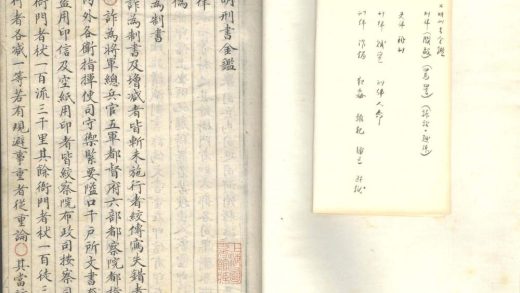 明刑書金鑑
刑律(闘毆)(罵詈)
刑律 詐偽 犯姦 雜犯
明刑書金鑑
律
為制書
詐為制書及增減者皆斬未施行者絞傳寫失錯者
詐為將軍總兵官五軍都督府六部都察院都指
內外各衛指揮使司守禦緊要隘口千戶所文書套
盜用印信及空紙用印者皆絞察院布政司按察司
衙門者杖一百流三千里其餘衙門者杖一百徒三
行者各減一等若有規避事重者從重論○其當該